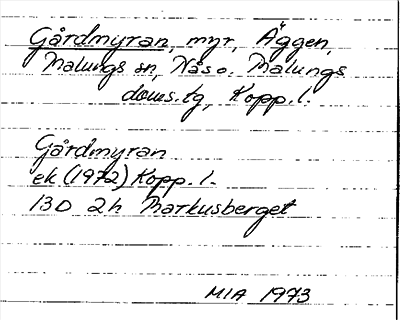 Gårdmyran, myr, Äggen,
Malungs sn, Nås o. Malungs
doms.tg, Kopp.l.
Gårdmyran
ek (1972) Kopp.l.
13D 2h Markusberget
MIA 1973